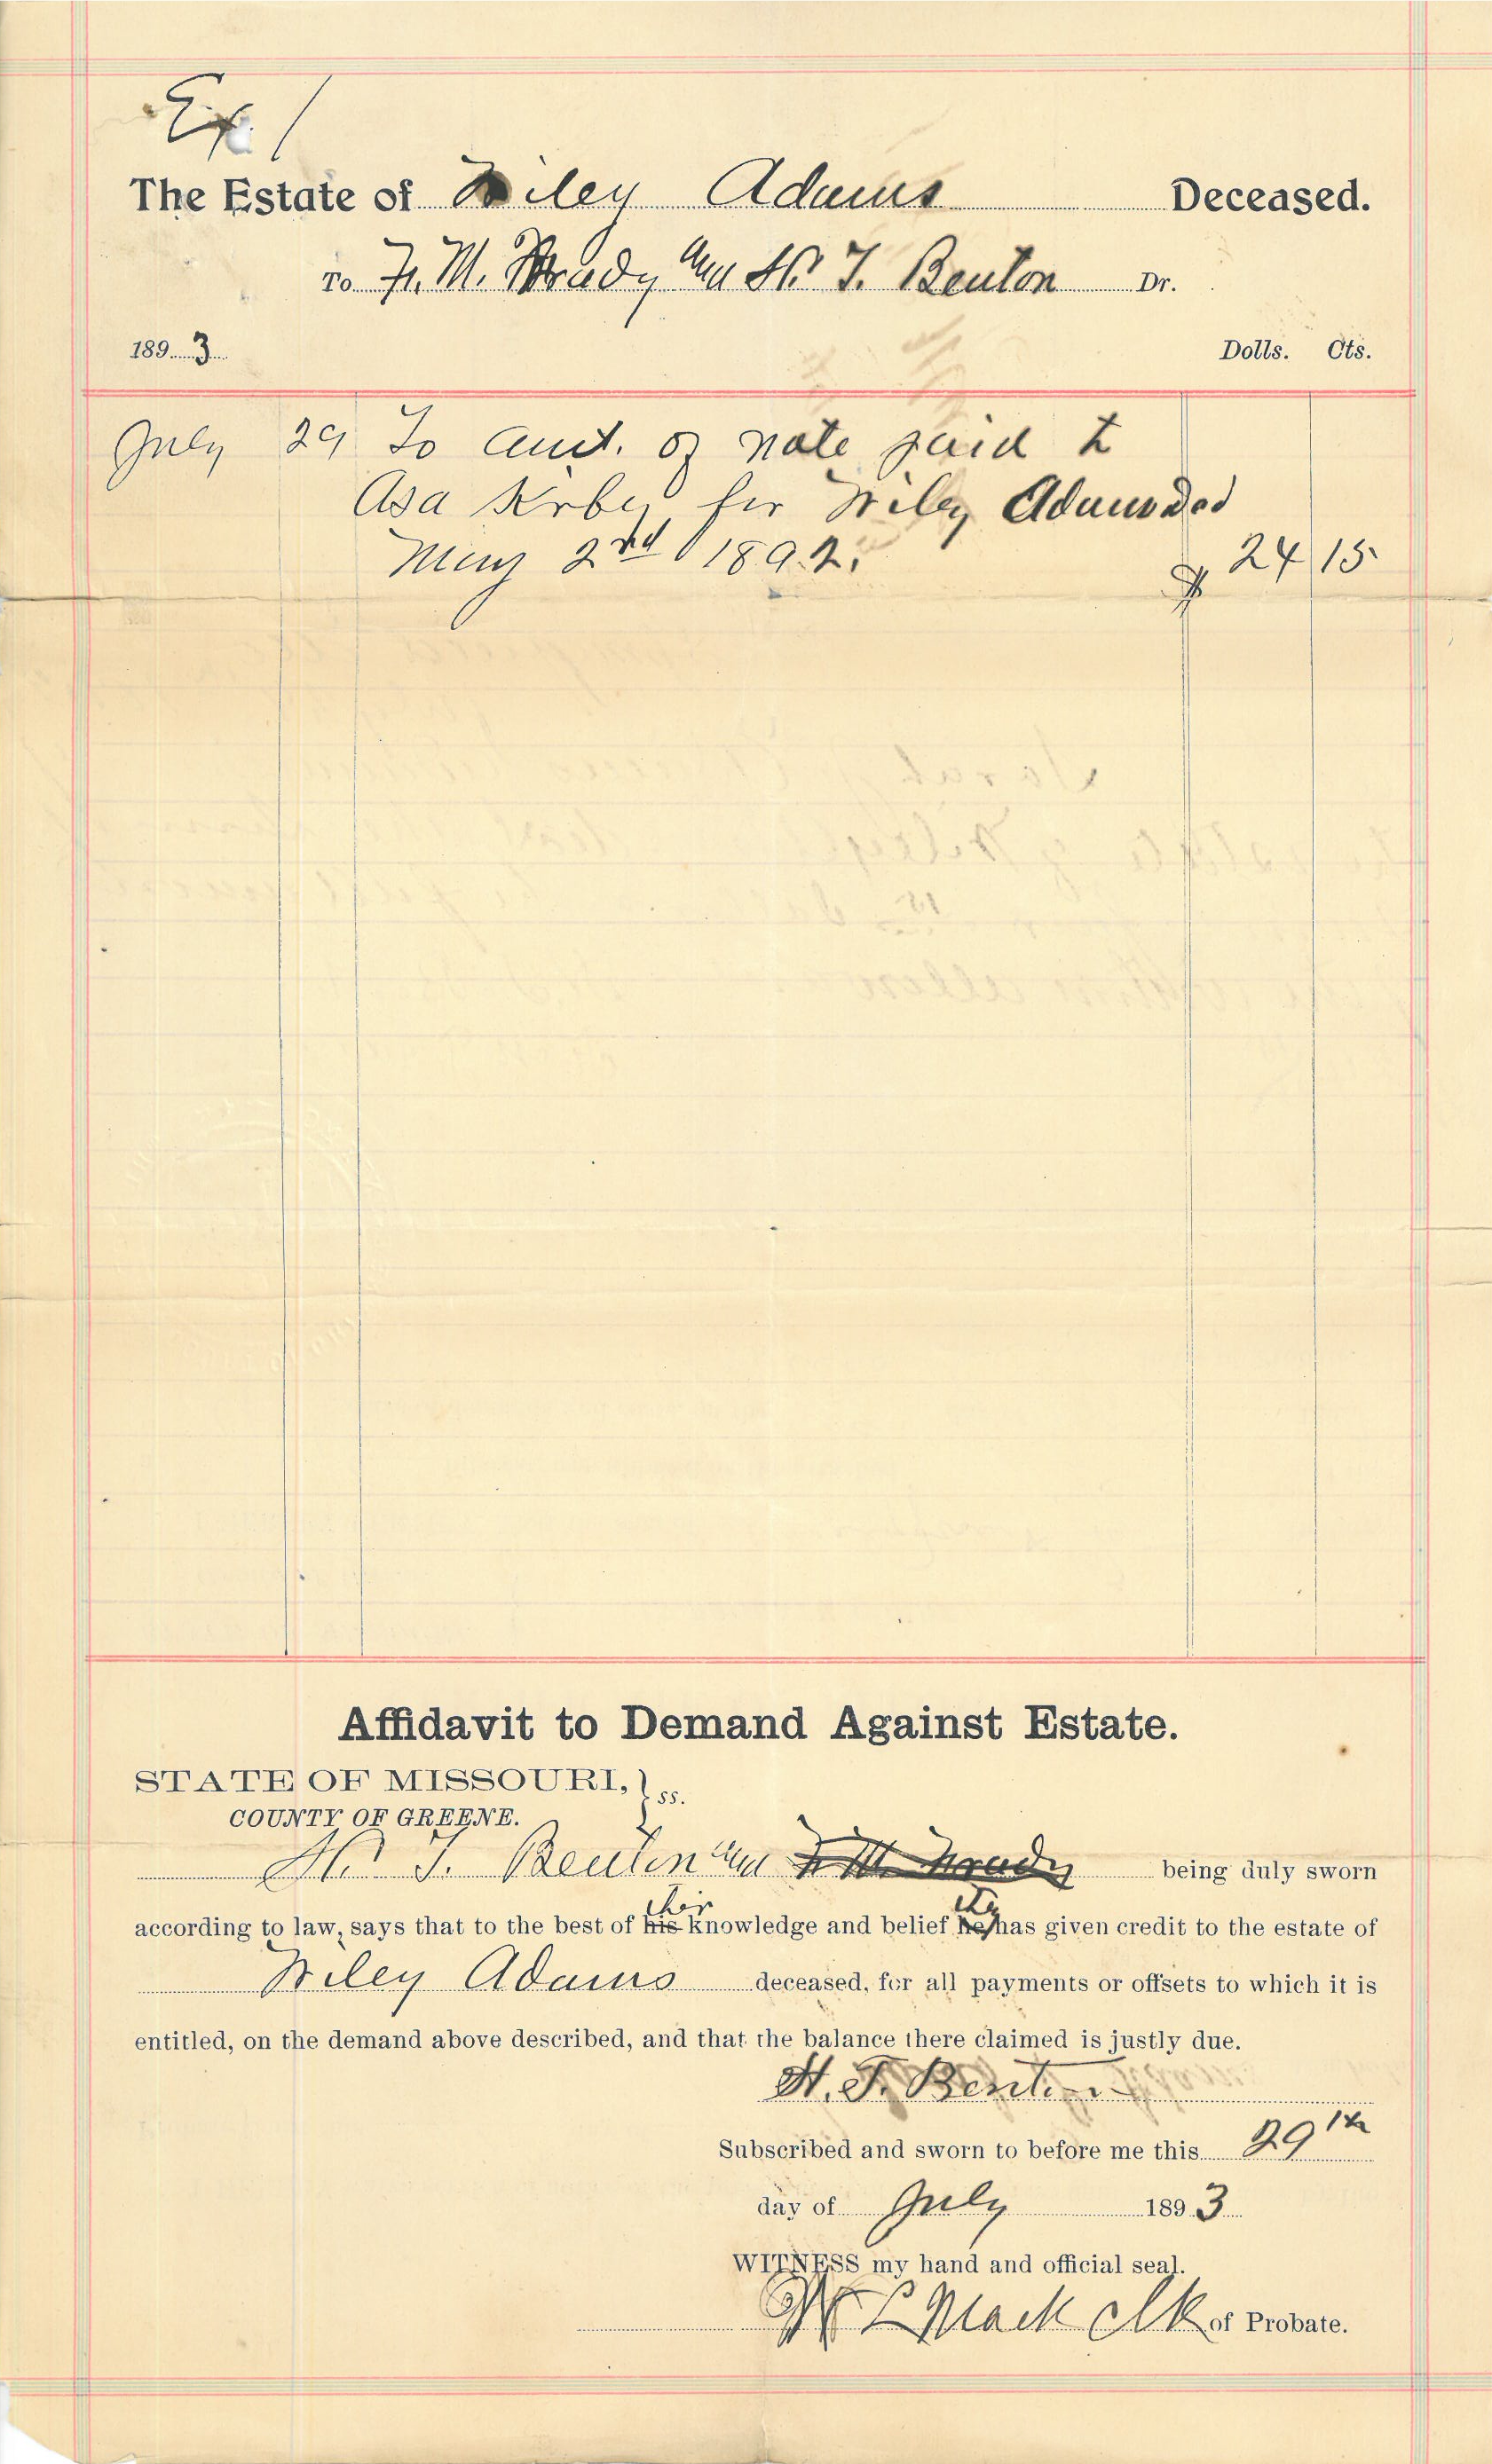 Ex. 1
The Estate of Wiley Adams Deceased.
To F. M. and H. T. Benton Dr.
1893 Dolls. Cts.
July 29 To amt. of note paid to
Asa Kirby for Wiley Adams Decd
May 2nd 1892. $ 24 15
Affidavit to Demand Against Estate.
STATE OF MISSOURI, } ss.
COUNTY OF GREENE.
H. T. Benton and F. M. being duly sworn
their they
according to law, says that to the best of his knowledge and belief he has given credit to the estate of
Wiley Adams deceased, for all payments or offsets to which it is
entitled, on the demand above described, and that the balance there claimed is justly due.
H. T. Benton
Subscribed and sworn to before me this 29th
day of July 1893
WITNESS my hand and official seal.
Mack Clk of Probate.